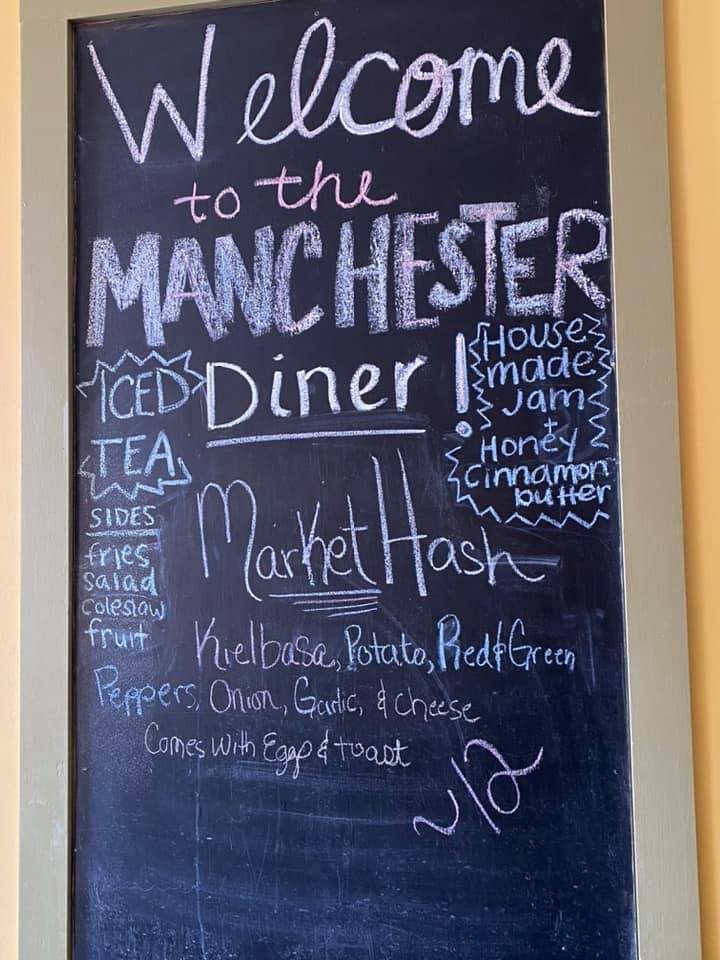 Welcome
to the
MANCHESTER
Diner!
ICED
TEA
House
made
Jam
+
Honey
Cinnamon
butter
SIDES
fries
salad
coleslaw
fruit
Market Hash
Kielbasa, Potato, Red & Green
Peppers, Onion, Garlic, & cheese
Comes With Eggs & toast
~12